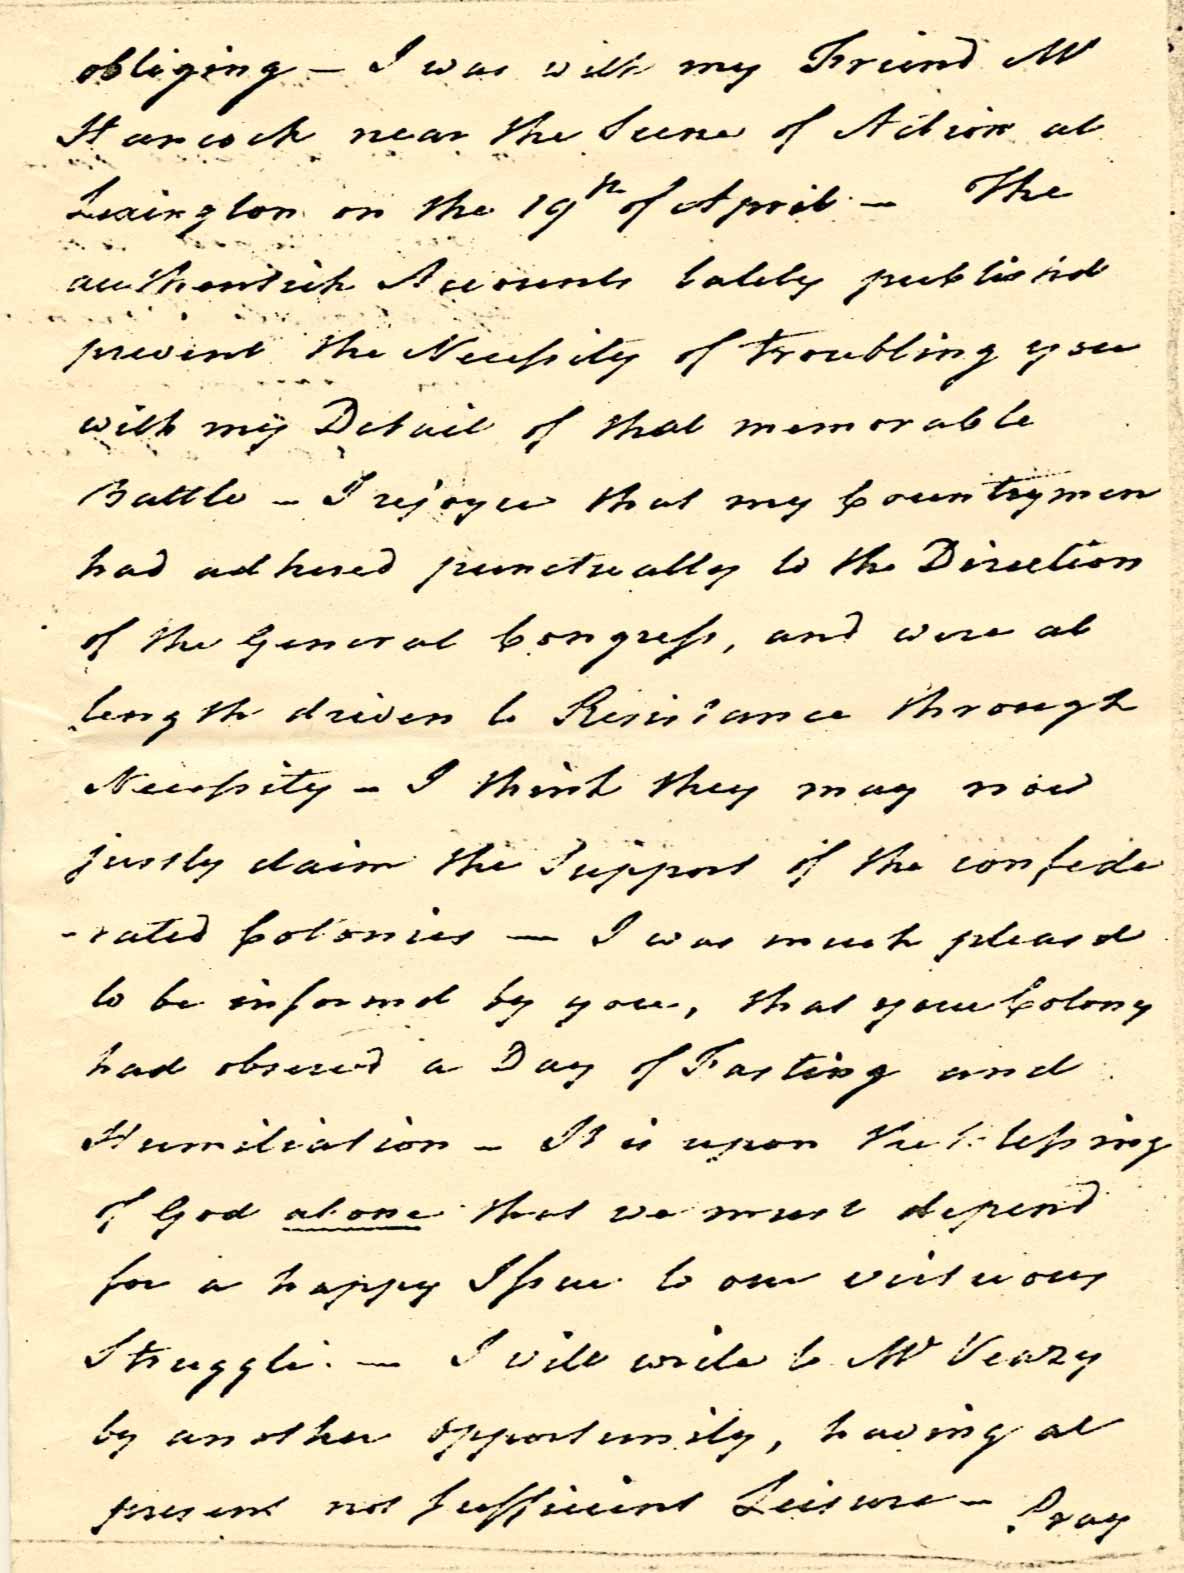 obliging – I was with my Friend Mr
Hancock near the Scene of Action at
Lexington on the 19th of April – The
authentick Accounts lately publishd
prevent the Necessity of troubling you
with my Detail of that memorable
Battle – I rejoyce that my Countrymen
had adhered punctually to the Direction
of the General Congress, and were at
length driven to Resistance through
Necessity – I think they may now
justly claim the Support of the confede
-rated Colonies — I was much pleasd
to be informd by you, that your Colony
had observed a Day of Fasting and
Humiliation – It is upon the blessing
of God alone that we must depend
for a happy Issue to our virtuous
Struggle. — I will write to Mr Veazy
by another opportunity, having at
present not sufficient Leisure – Pray